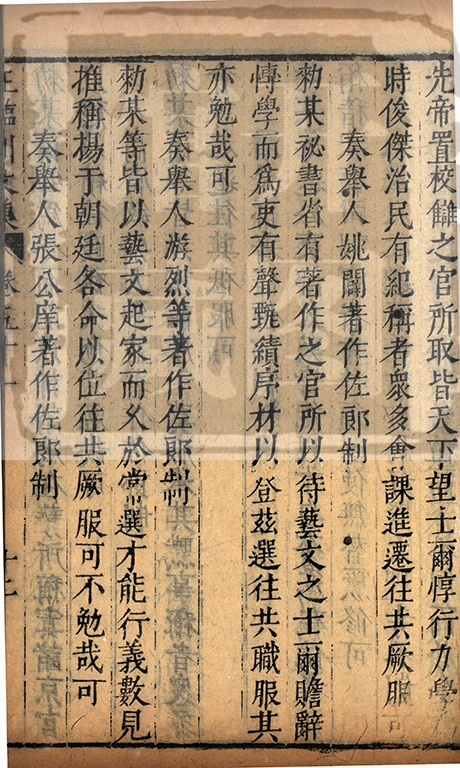 先帝置校讎之官所取皆天下望士爾惇行力學
時俊傑治民有紀稱者衆多會課進遷往共厥服可
奏舉人姚闢著作佐郎制
勑某祕書省有著作之官所以待藝文之士爾贍辭
慱學而爲吏有聲甄績序材以登茲選往共職服其
亦勉哉可
奏舉人游烈等著作佐郎制
勑某等皆以藝文起家而久於常選才能行義數見
推稱揚于朝廷各命以位往共厥服可不勉哉可
奏舉人張公庠著作佐郎制
王臨川文集 卷五十一